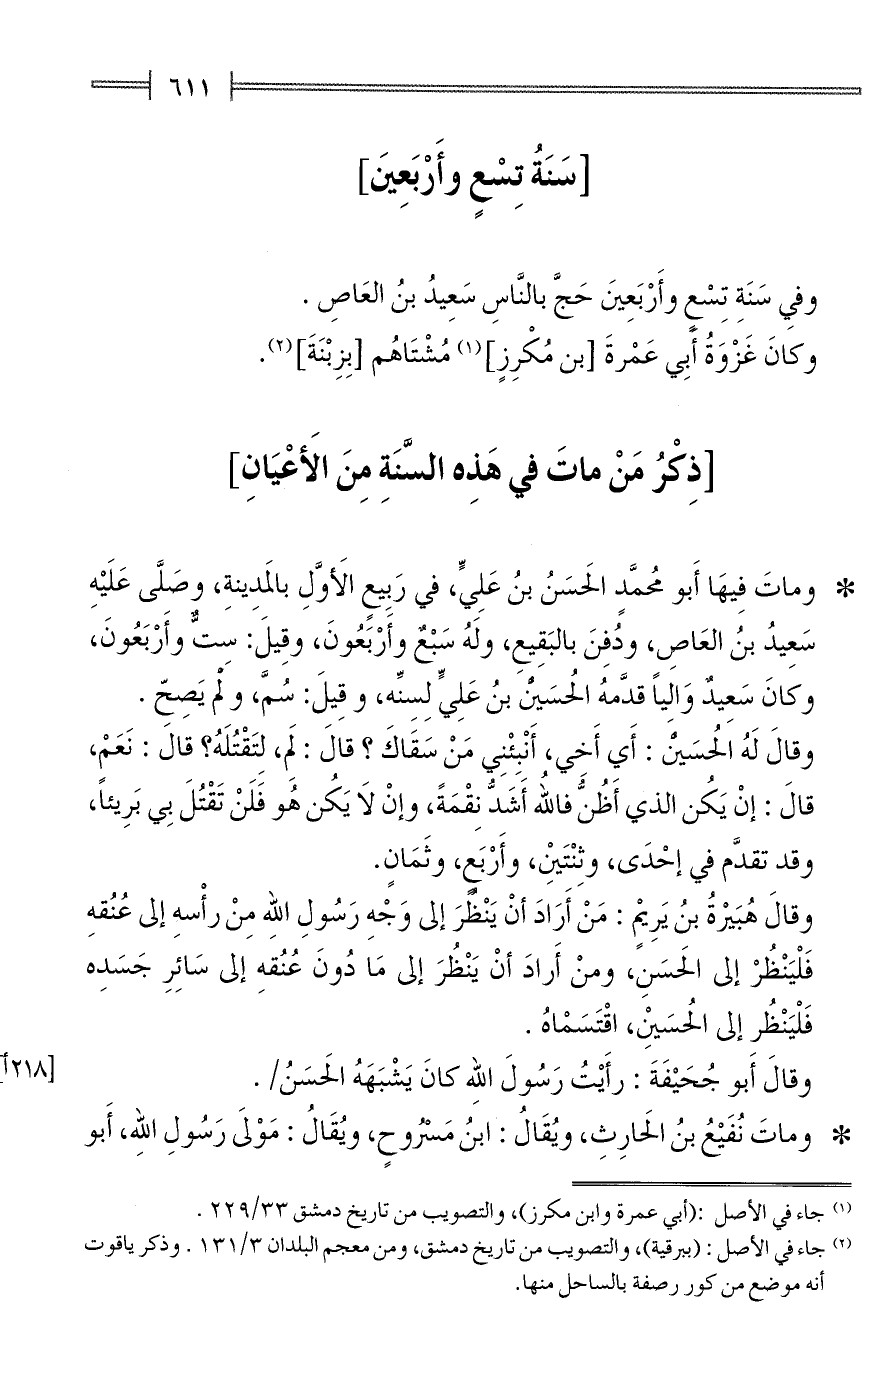 ٦١١
[سَنَةُ تِسْعٍ وأَرْبَعِينَ]
وفي سَنَةِ تِسْعٍ وأَرْبَعِينَ حَجَّ بالنَّاسِ سَعِيدُ بنُ العَاصِ .
وكانَ غَزْوَةُ أَبي عَمْرةَ [بن مُكْرِزٍ](١) مُشْتَاهُم [بِزِبْنَةَ](٢).
[ذِكْرُ مَنْ ماتَ في هَذِه السَّنَةِ مِنَ الأَعْيَانِ]
* وماتَ فِيهَا أَبو مُحمَّدٍ الحَسَنُ بنُ عَليٍّ، في رَبِيعٍ الأَوَّلِ بالمَدِينةِ، وصَلَّى عَلَيْهِ
سَعِيدُ بنُ العَاصِ، ودُفِنَ بالبَقِيعِ، ولَهُ سَبْعٌ وأَرْبَعُونَ، وقِيلَ: سِتٌّ وأَرْبَعُونَ،
وكانَ سَعِيدٌ وَالِياً قدَّمهُ الحُسَينُ بنُ عَليٍّ لِسِنِّه، و قِيلَ: سُمَّ، و لَمْ يَصِحّ .
وقالَ لَهُ الحُسَينُ : أَي أَخِي، أَنْبِئْنِي مَنْ سَقَاكَ ؟ قالَ : لَم، لِتَقْتُلَهُ؟ قالَ : نَعَمْ،
قالَ : إنْ يَكُن الذي أَظُنُّ فاللهُ أَشَدُّ نِقْمَةً، وإنْ لاَ يَكُن هُو فَلَنْ تَقْتُلَ بي بَرِيئاً،
وقد تقدَّم في إحْدَى، وثِنْتَيْنِ، وأَرْبَعٍ، وثَمَانٍ.
وقالَ هُبَيْرَةُ بنُ يَرِيمْ : مَنْ أَرَادَ أنْ يَنْظُرَ إلى وَجْهِ رَسُولِ اللهِ مِنْ رأْسهِ إلى عُنُقهِ
فَلْيَنْظُرْ إلى الحَسَنِ، ومنْ أَرادَ أنْ يَنْظُرَ إلى مَا دُونَ عُنُقهِ إلى سَائِرِ جَسَدِه
فَلْيَنْظُر إلى الحُسَيْنِ، اقْتَسَمْاهُ .
وقالَ أبو جُحَيْفَةَ : رأَيْتُ رَسُولَ اللهِ كانَ يَشْبَهَهُ الحَسَنُ/ .
[٢١٨أ]
* وماتَ نُفَيْعُ بنُ الحَارِثِ، ويُقَالُ : ابنُ مَسْرُوحٍ، ويُقَالُ : مَوْلَى رَسُولِ اللهِ، أَبو
(١) جاء في الأصل :(أبي عمرة وابن مكرز)، والتصويب من تاريخ دمشق ٢٢٩/٣٣ .
(٢) جاء في الأصل : (ببرقية)، والتصويب من تاريخ دمشق، ومن معجم البلدان ١٣١/٣ . وذكر ياقوت
أنه موضع من كور رصفة بالساحل منها.